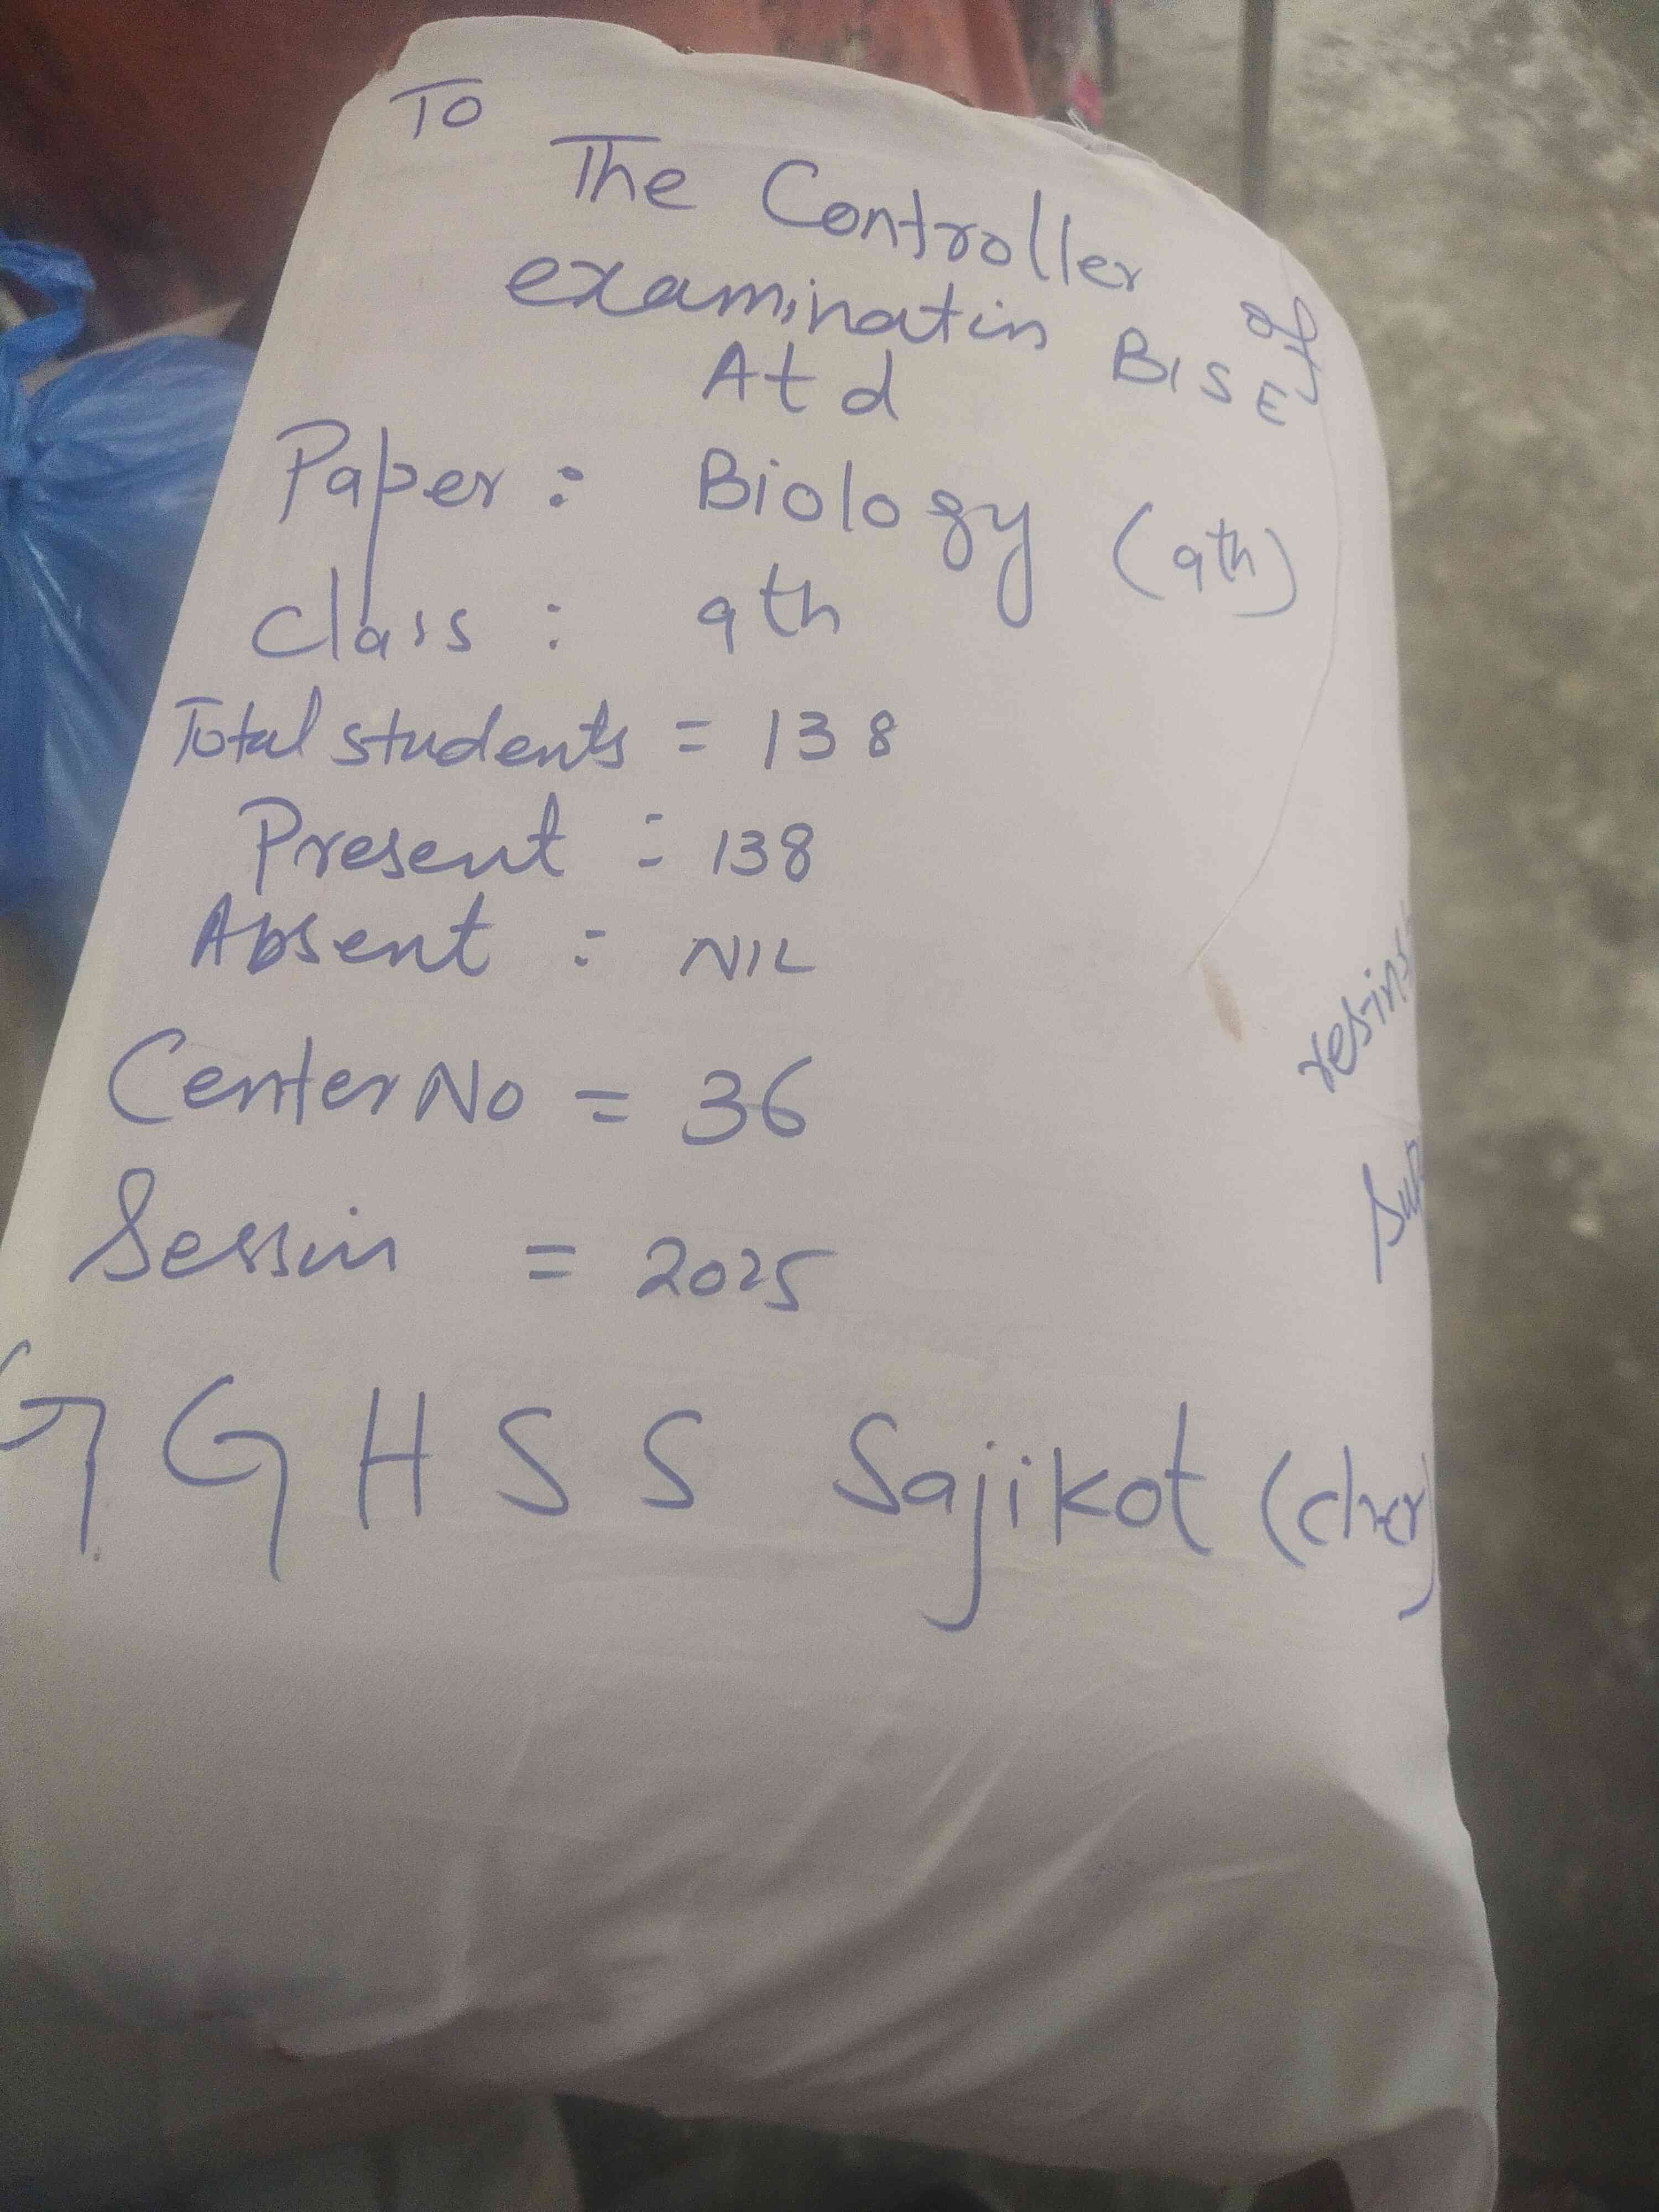 To
The Controller of
examinatin BISE
Atd
Paper : Biology (9th)
Class : 9th
Total students = 138
Present : 138
Absent : NIL
Center No = 36
Sessin = 2025
GGHSS Sajikot